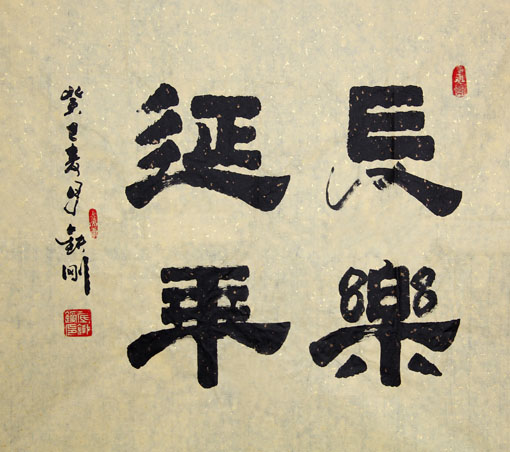 長樂
延年
癸巳夏月 剛